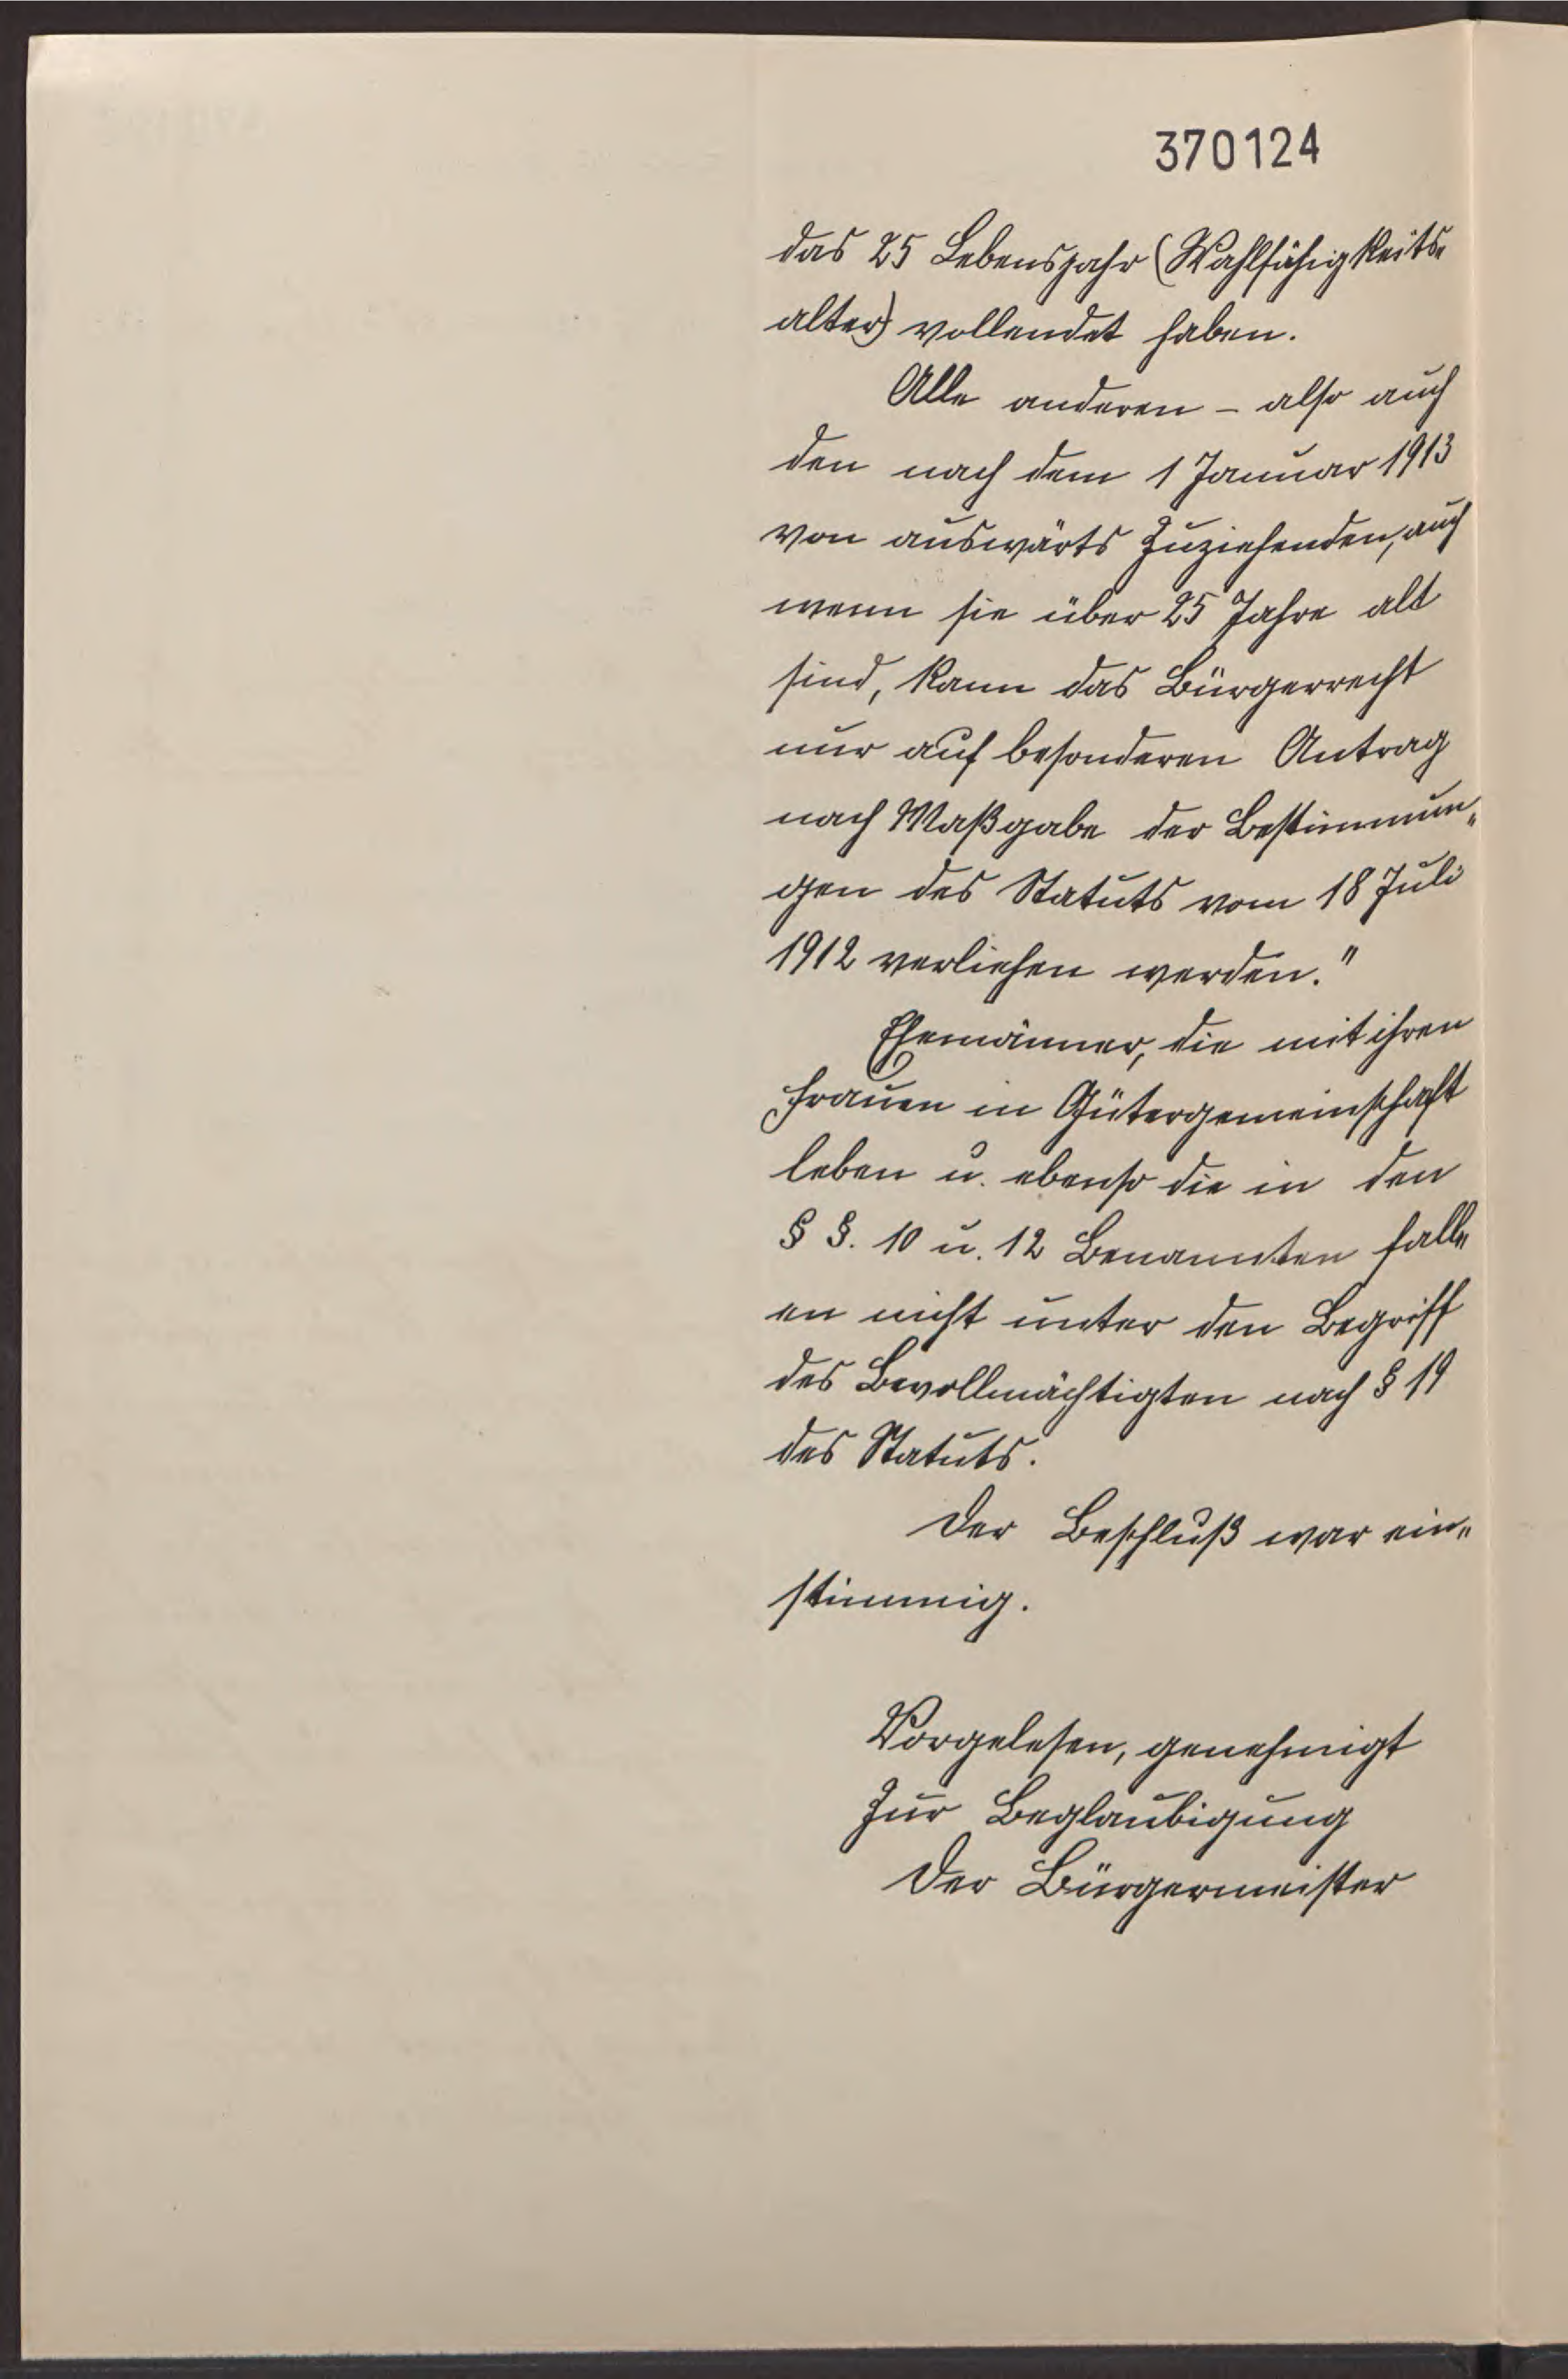 370124
das 25 Lebensjahr (Wahlfähigkeits-
alter) vollendet haben.
Alle anderen - also auch
den nach dem 1 Januar 1913
von auswärts Zuziehenden, auch
wenn sie über 25 Jahre alt
sind, kann das Bürgerrecht
nur auf besonderen Antrag
nach Maßgabe der Bestimmun„
gen des Statuts vom 18 Juli
1912 verliehen werden."
Ehemänner, die mit ihren
Frauen in Gütergemeinschaft
leben u. ebenso die in den
§ §. 10 u. 12 Benannten fall„
en nicht unter den Begriff
des Bevollmächtigten nach § 19
des Statuts.
Der Beschluß war ein„
stimmig.
Vorgelesen, genehmigt
Zur Beglaubigung
Der Bürgermeister